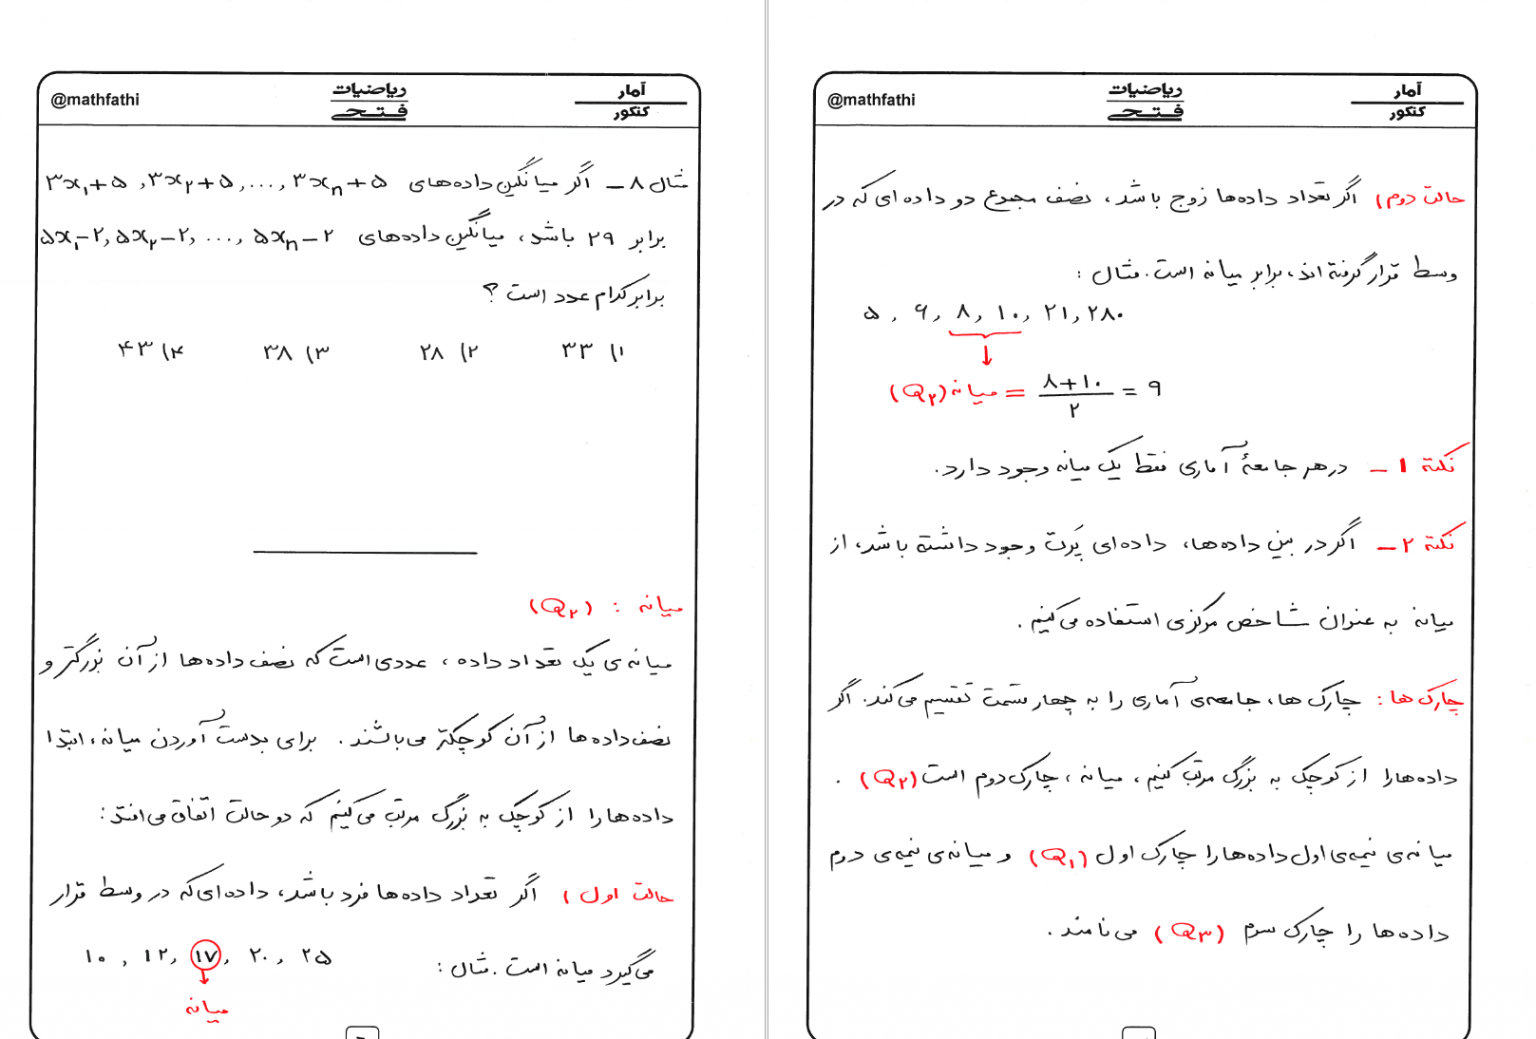 @mathfathi
ریاضیات
فتحی
آمار
کنکور
مثال ۸ – اگر میانگین داده‌های ۳x₁+۵ , ۳x₂+۵ , ... , ۳xₙ+۵
برابر ۲۹ باشد، میانگین داده‌های ۵x₁-۲, ۵x₂-۲, ... , ۵xₙ-۲
برابر کدام عدد است ؟
۱) ۳۳ ۲) ۲۸ ۳) ۳۸ ۴) ۴۳
میانه : (Q₂)
میانه‌ی یک تعداد داده ، عددی است که نصف داده‌ها از آن بزرگتر و
نصف داده‌ها از آن کوچکتر می‌باشند . برای بدست آوردن میانه، ابتدا
داده‌ها را از کوچک به بزرگ مرتب می‌کنیم که دو حالت اتفاق می‌افتد :
حالت اول ) اگر تعداد داده‌ها فرد باشد، داده‌ای که در وسط قرار
می‌گیرد میانه است . مثال :
۱۰ , ۱۲, ۱۷, ۲۰, ۲۵
میانه
@mathfathi
ریاضیات
فتحی
آمار
کنکور
حالت دوم) اگر تعداد داده‌ها زوج باشد، نصف مجموع دو داده‌ای که در
وسط قرار گرفته‌اند، برابر میانه است. مثال :
۵ , ۹, ۸, ۱۰, ۲۱, ۲۸۰
(Q₂) میانه = ۸+۱۰ / ۲ = ۹
نکتهٔ ۱ – در هر جامعهٔ آماری فقط یک میانه وجود دارد.
نکتهٔ ۲ – اگر در بین داده‌ها، داده‌ای پَرت وجود داشته باشد، از
میانه به عنوان شاخص مرکزی استفاده می‌کنیم .
چارک‌ها : چارک‌ها، جامعه‌ی آماری را به چهار قسمت تقسیم می‌کند. اگر
داده‌ها را از کوچک به بزرگ مرتب کنیم، میانه ، چارک دوم است (Q₂) .
میانه‌ی نیمه‌ی اول داده‌ها را چارک اول (Q₁) و میانه‌ی نیمه‌ی دوم
داده‌ها را چارک سوم (Q₃) می‌نامند .